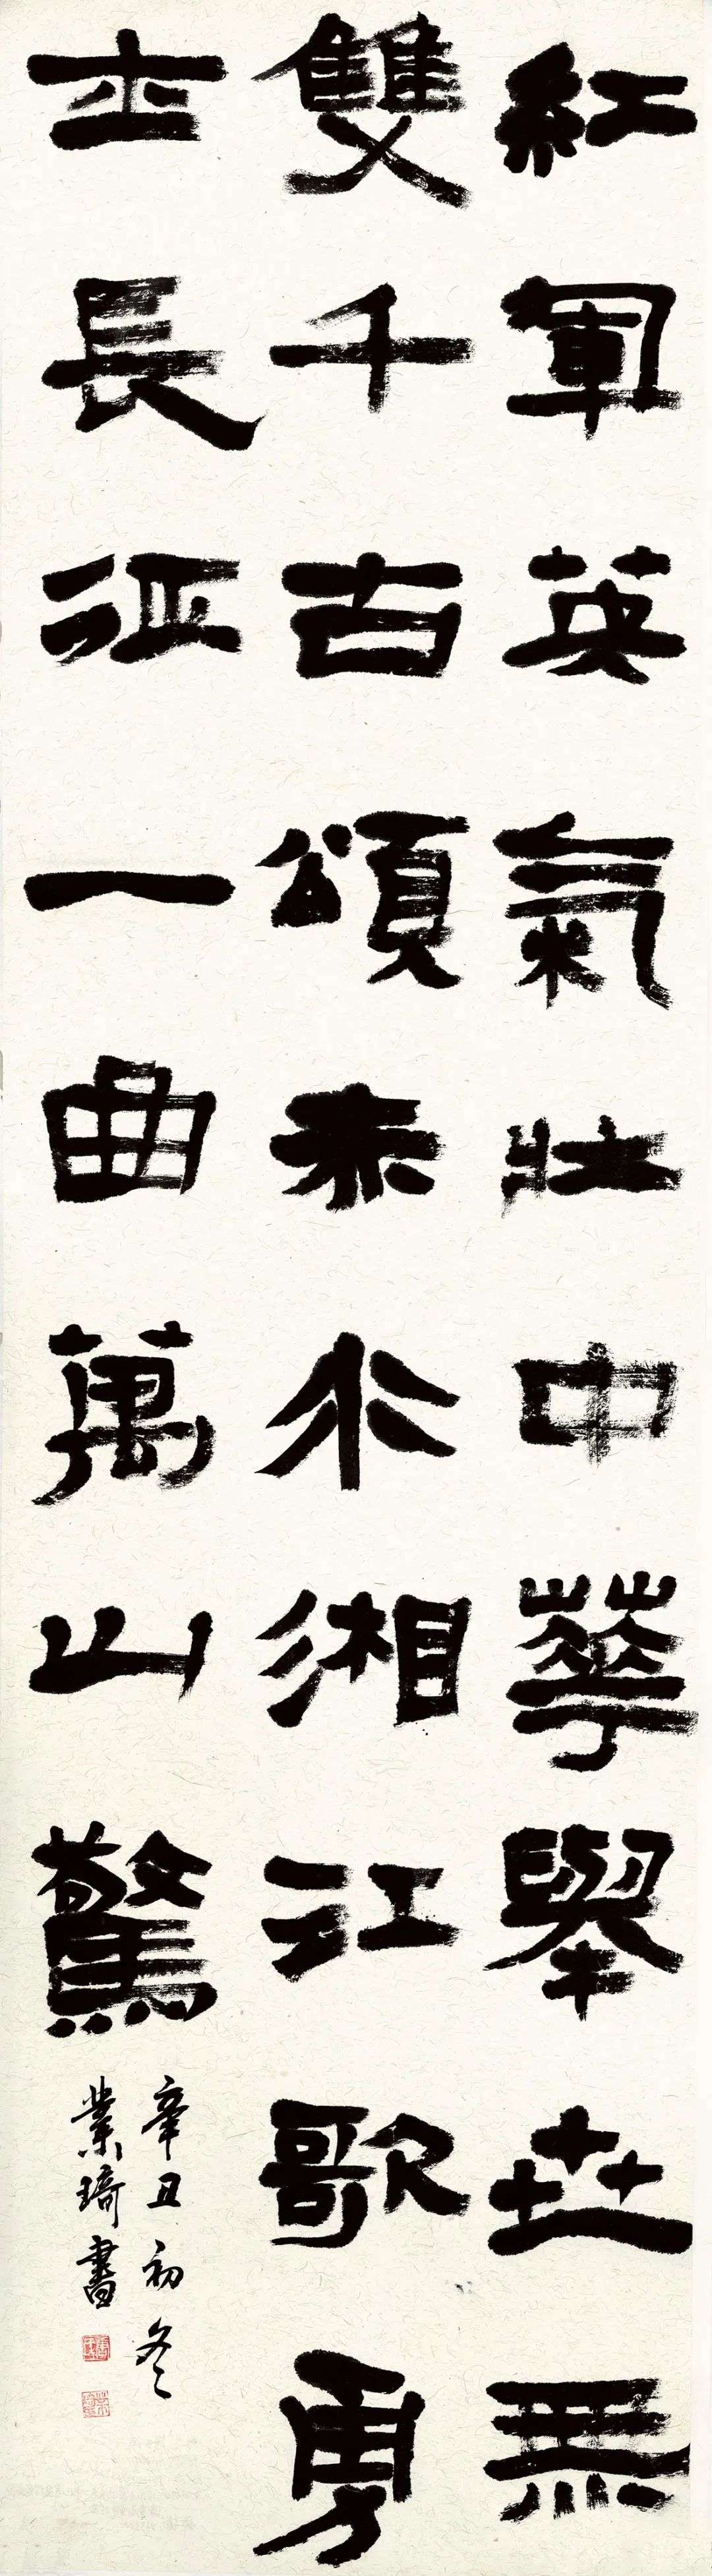 紅軍英氣壯中華舉世無
雙千古頌赤水湘江歌勇
士長征一曲萬山驚
辛丑初冬
業琦書